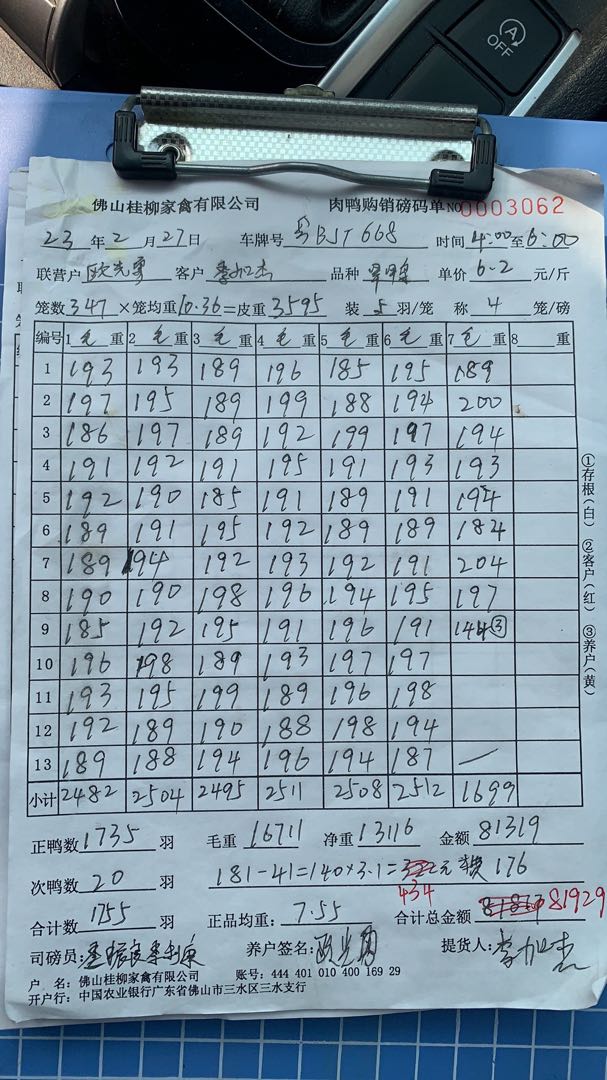 A OFF
佛山桂柳家禽有限公司 肉鸭购销磅码单 NO 0003062
23 年 2 月 27 日 车牌号 BJT 668 时间 4:00 至 6:00
联营户 客户 李加杰 品种 单价 6.2 元/斤
笼数 347 ×笼均重 10.36 =皮重 3595 装 5 羽/笼 称 4 笼/磅
编号 1 毛 重 2 毛 重 3 毛 重 4 毛 重 5 毛 重 6 毛 重 7 毛 重 8 重
1 193 193 189 196 185 195 189
2 197 195 189 199 188 194 200
3 186 197 189 192 199 197 194
4 191 192 191 195 191 193 193
5 192 190 185 191 189 191 194
6 189 191 195 192 189 189 184
7 189 194 192 193 192 191 204
8 190 190 198 196 194 195 197
9 185 192 195 191 196 191 144 ③
10 196 198 189 193 197 197
11 193 195 199 189 196 198
12 192 189 190 188 198 194
13 189 188 194 196 194 187 —
小计 2482 2504 2495 2511 2508 2512 1699
正鸭数 1735 羽 毛重 16711 净重 13116 金额 81319
次鸭数 20 羽 181-41=140×3.1= 元 176
434
合计数 1755 羽 正品均重: 7.55 合计总金额 81929
司磅员: 养户签名: 提货人: 李加杰
户 名: 佛山桂柳家禽有限公司 账号: 444 401 010 400 169 29
开户行: 中国农业银行广东省佛山市三水区三水支行
①存根(白) ②客户(红) ③养户(黄)